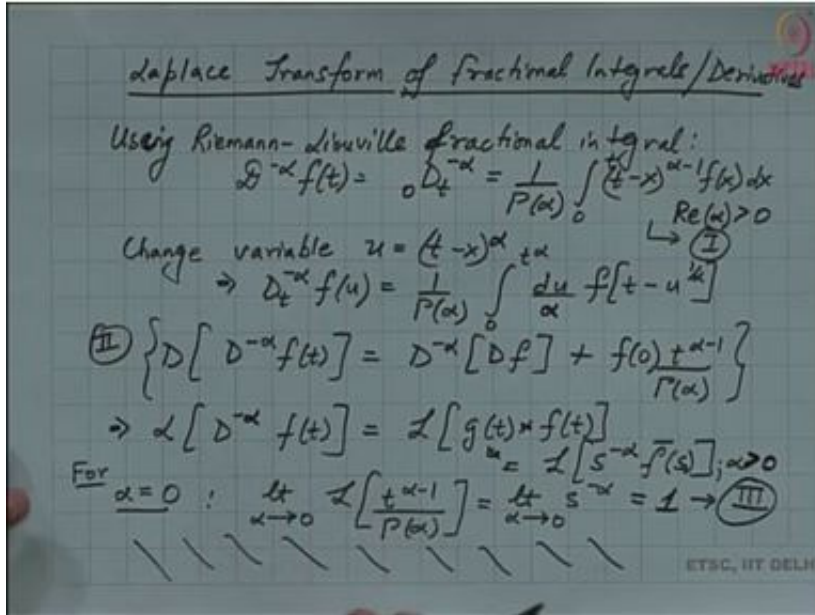 Laplace Transform of fractional Integrals/Derivatives
Using Riemann-Liouville fractional integral:
D^{-α} f(t) = ₀D_t^{-α} = 1/Γ(α) ∫₀^t (t-x)^{α-1} f(x) dx
Re(α) > 0
↳ (I)
Change variable u = (t-x)^α
⇒ D_t^{-α} f(u) = 1/Γ(α) ∫₀^{t^α} du/α f[t - u^{1/α}]
(II) {D[D^{-α} f(t)] = D^{-α}[Df] + f(0) t^{α-1}/Γ(α)}
⇒ L[D^{-α} f(t)] = L[g(t) * f(t)]
= L[s^{-α} f̄(s)], α>0
For α = 0 : lt_{α→0} L[t^{α-1}/Γ(α)] = lt_{α→0} s^{-α} = 1 → (III)
ETSC, IIT DELHI